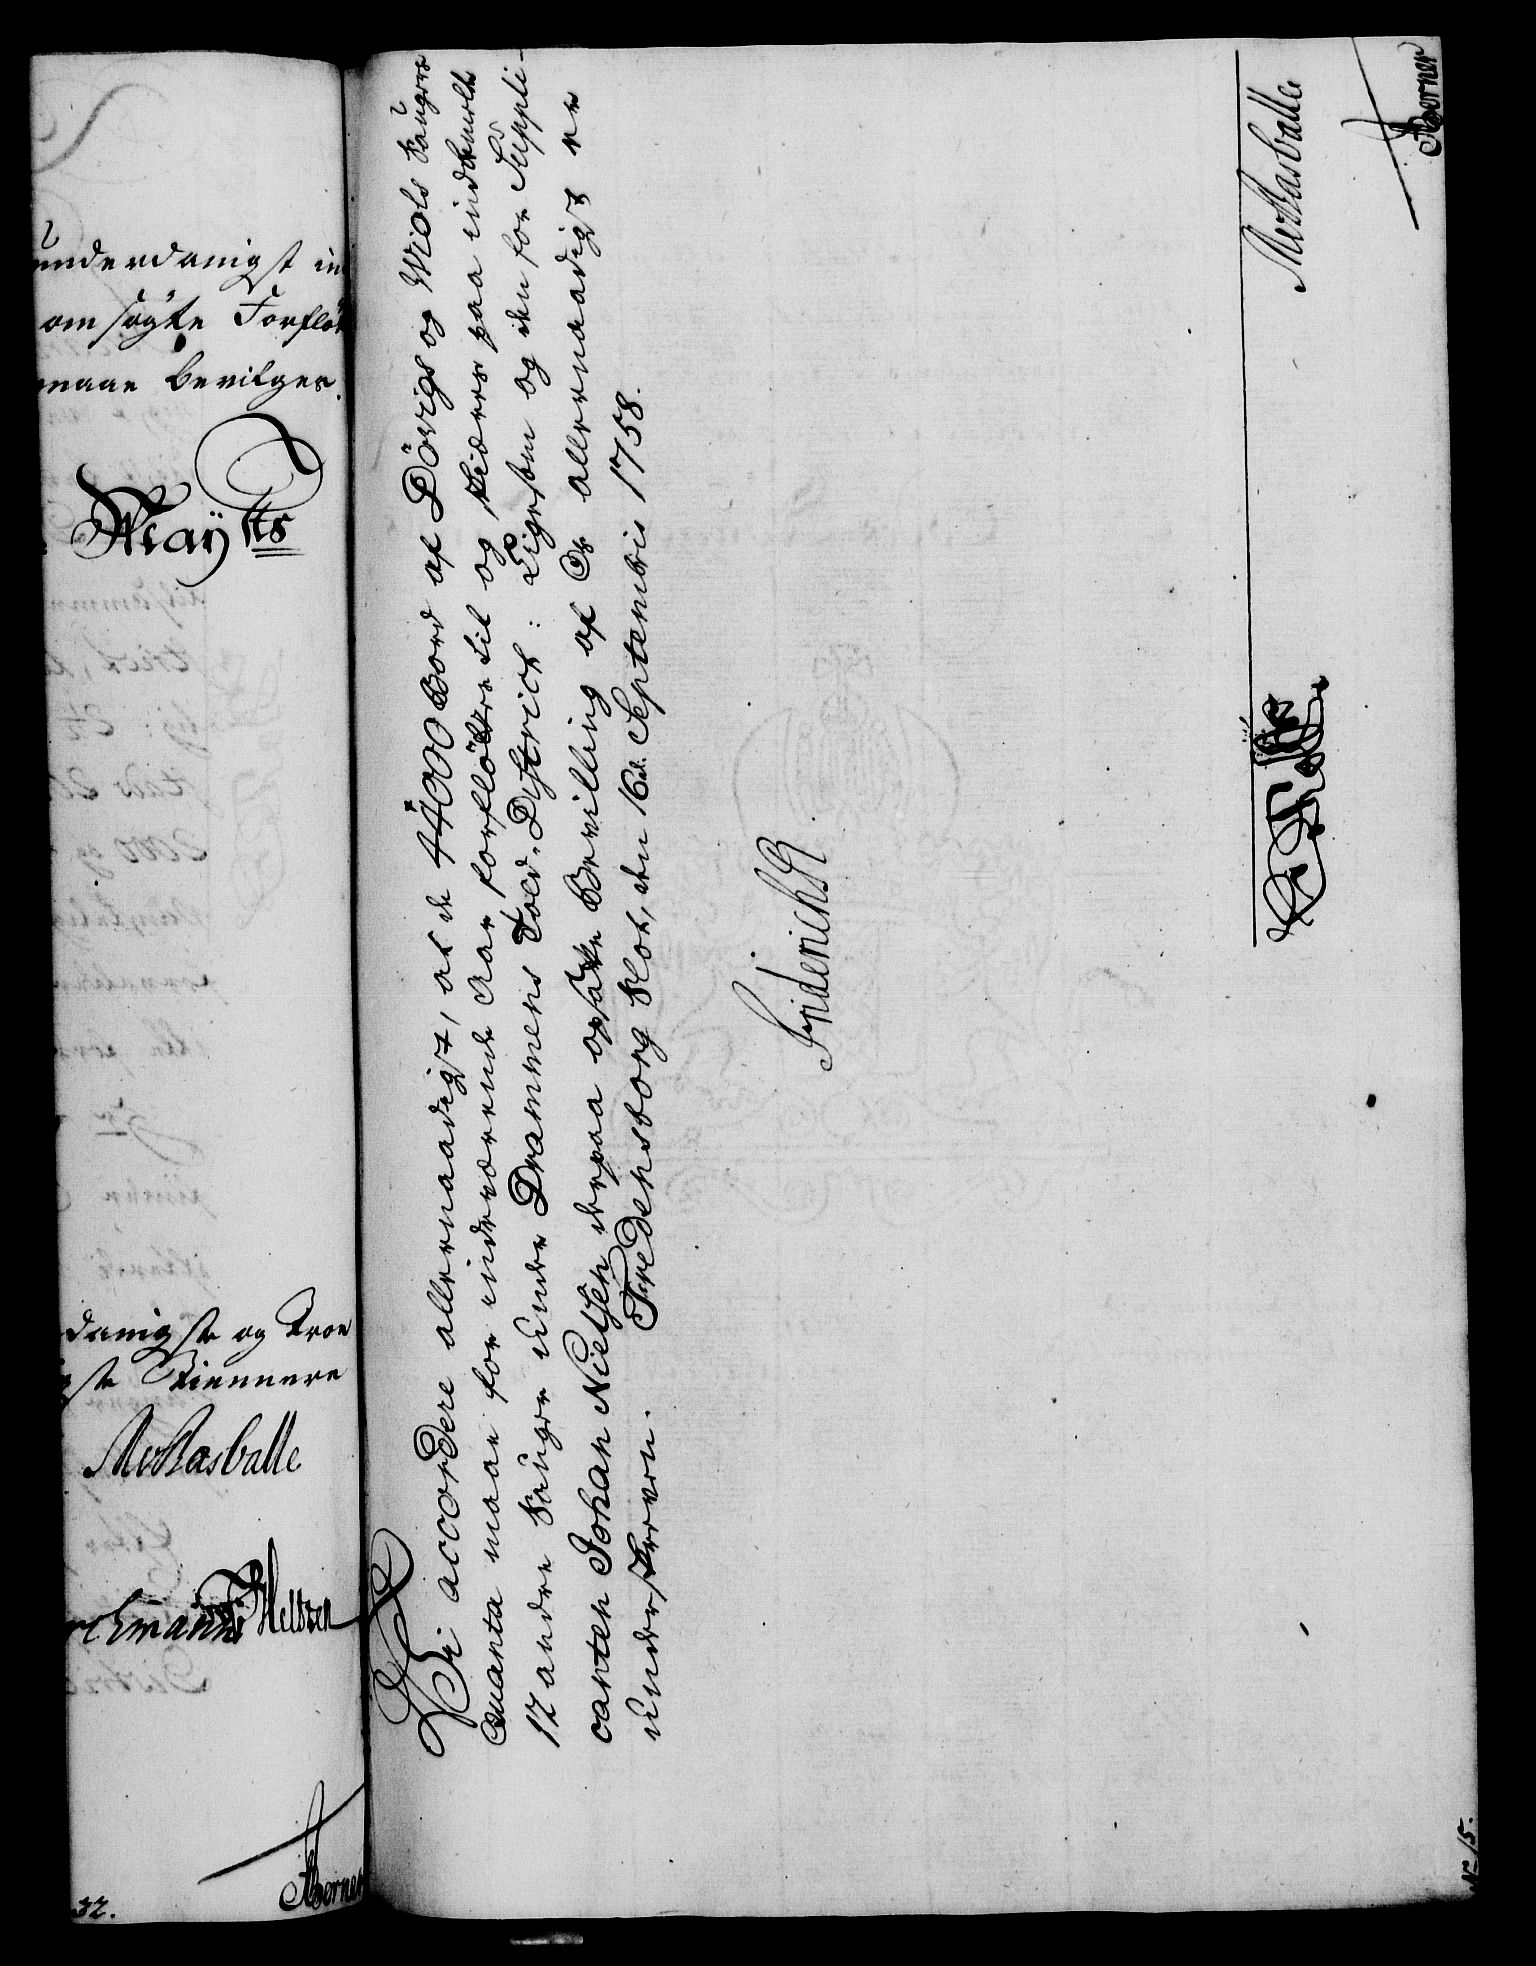 underdanigst in
om søgte Forflöt
maae bevilges.
Mayts
danigste og Troe
gste Tiennere
MvHasballe
Meltzen
Aberner
32.
Vi accordere allernaadigst, at de 44000 Bord af Dövigs og Viols Saugers
Quanta maae for indeværende Aar forflöttes til og skiæres paa indbemelte
12 andre Sauger under Drammens Told-Dystrict: Ligesom og den for Suppli-
canten Johan Nielsen derpaa opsatte Bevilling af Os allernaadigst er
underskreven. Fredensborg Slot, den 16de Septembris 1758.
Friderich R
MvHasballe
Aberner
No 15.